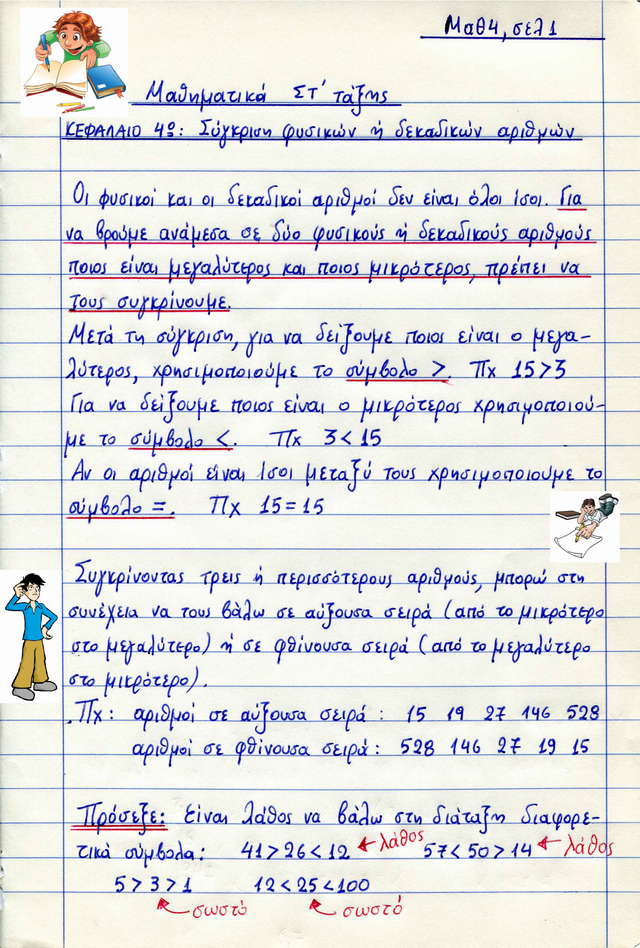 Μαθ4, σελ1
Μαθηματικά ΣΤ' τάξης
ΚΕΦΑΛΑΙΟ 4ο: Σύγκριση φυσικών ή δεκαδικών αριθμών
Οι φυσικοί και οι δεκαδικοί αριθμοί δεν είναι όλοι ίσοι. Για
να βρούμε ανάμεσα σε δύο φυσικούς ή δεκαδικούς αριθμούς
ποιος είναι μεγαλύτερος και ποιος μικρότερος, πρέπει να
τους συγκρίνουμε.
Μετά τη σύγκριση, για να δείξουμε ποιος είναι ο μεγα-
λύτερος, χρησιμοποιούμε το σύμβολο >. Πχ 15>3
Για να δείξουμε ποιος είναι ο μικρότερος χρησιμοποιού-
με το σύμβολο <. Πχ 3<15
Αν οι αριθμοί είναι ίσοι μεταξύ τους χρησιμοποιουμε το
σύμβολο =. Πχ 15=15
Συγκρίνοντας τρεις ή περισσότερους αριθμούς, μπορώ στη
συνέχεια να τους βάλω σε αύξουσα σειρά (από το μικρότερο
στο μεγαλύτερο) ή σε φθίνουσα σειρά (από το μεγαλύτερο
στο μικρότερο).
Πχ: αριθμοί σε αύξουσα σειρά: 15 19 27 146 528
αριθμοί σε φθίνουσα σειρά: 528 146 27 19 15
Πρόσεξε: Είναι λάθος να βάλω στη διάταξη διαφορε-
τικά σύμβολα: 41>26<12 ← λάθος 57<50>14 ← λάθος
5>3>1 12<25<100
← σωστό ← σωστό